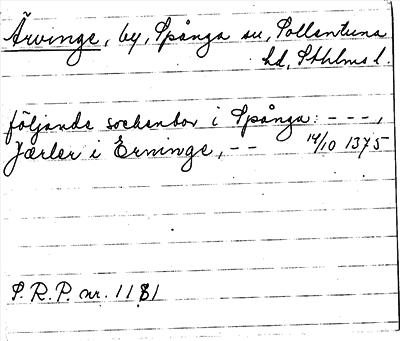 Ärvinge, by, Spånga sn, Sollentuna
hd, Sthlms l.
följande sockenbor i Spånga: - - -,
Jærler i Erninge, - - 14/10 1375
S. R. P. nr. 1181